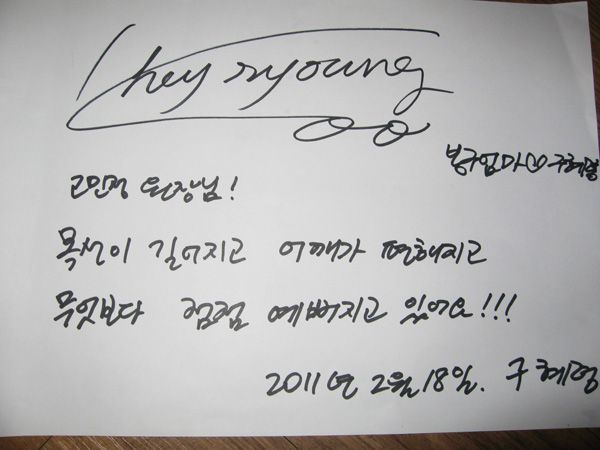 hey ryoung
봉구엄마♡구혜령
고민정 원장님!
목선이 길어지고 어깨가 편해지고
무엇보다 점점 예뻐지고 있어요!!!
2011년 2월 18일. 구혜령